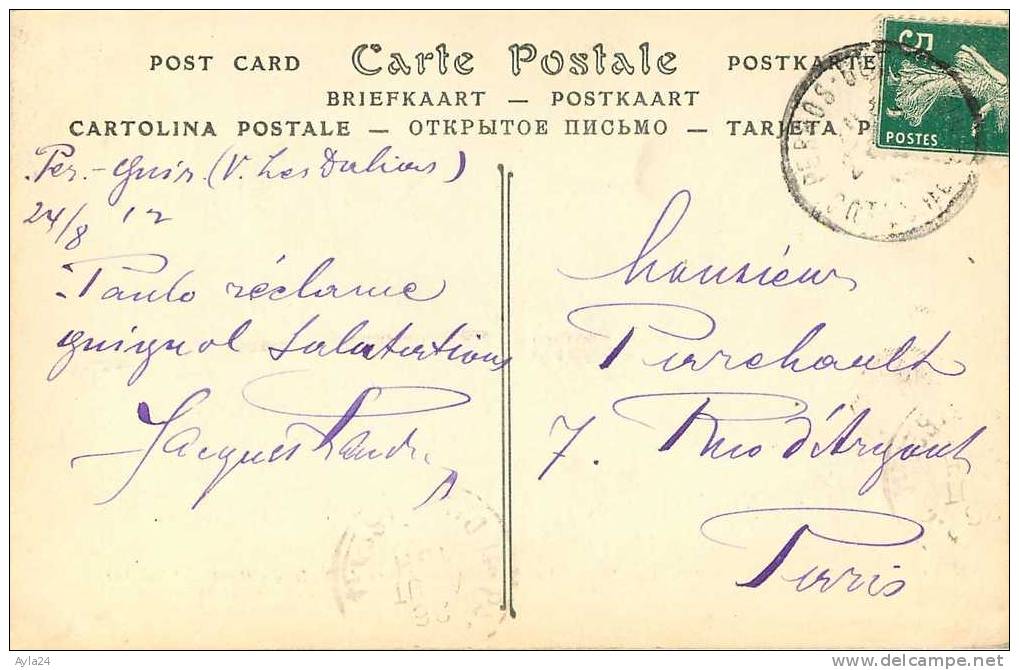 POST CARD Carte Postale POSTKARTE
BRIEFKAART — POSTKAART
CARTOLINA POSTALE — ОТКРЫТОЕ ПИСЬМО — TARJETA P
5
POSTES
PERROS-GUI
Per.-Guir. (V. Les Dalias)
24/8 12
Paulo réclame
guignol Salutations
Jacques
Monsieur
Perrehault
7. Rue d'Argout
Paris
Ayla24
www.delcampe.net